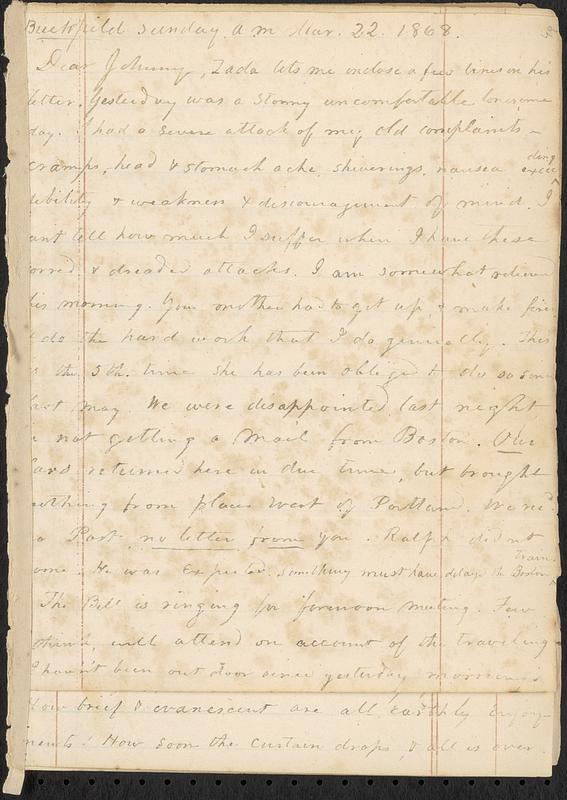 Buckfield Sunday a.m Mar. 22. 1868.
Dear Johnny, Zada lets me inclose a few lines on his
letter. Yesterday was a stormy uncomfortable lonesome
day. I had a severe attack of my old complaints –
cramps, head & stomach ache, shiverings, nausea exceeding
debility & weakness & discouragement of mind. I
cant tell how much I suffer when I have these
horred & dreaded attacks. I am somewhat relieved
this morning. Your mother has to get up, & make fires
& do the hard work that I do generally. This
is the 5th. time she has been obliged to do so since
last May. We were disappointed last night
in not getting a mail from Boston. Our
cars returned here in due time, but brought
nothing from places West of Portland. We rec'd
a Post no letter from you. Ralph did not
come. He was expected. Something must have delayed the Boston Train.
The Bell is ringing for forenoon meeting. Few
I think will attend on account of the traveling
I haven't been out door since yesterday morning
How brief & evanescent are all earthly enjoy-
ments! How soon the curtain drops, & all is over.